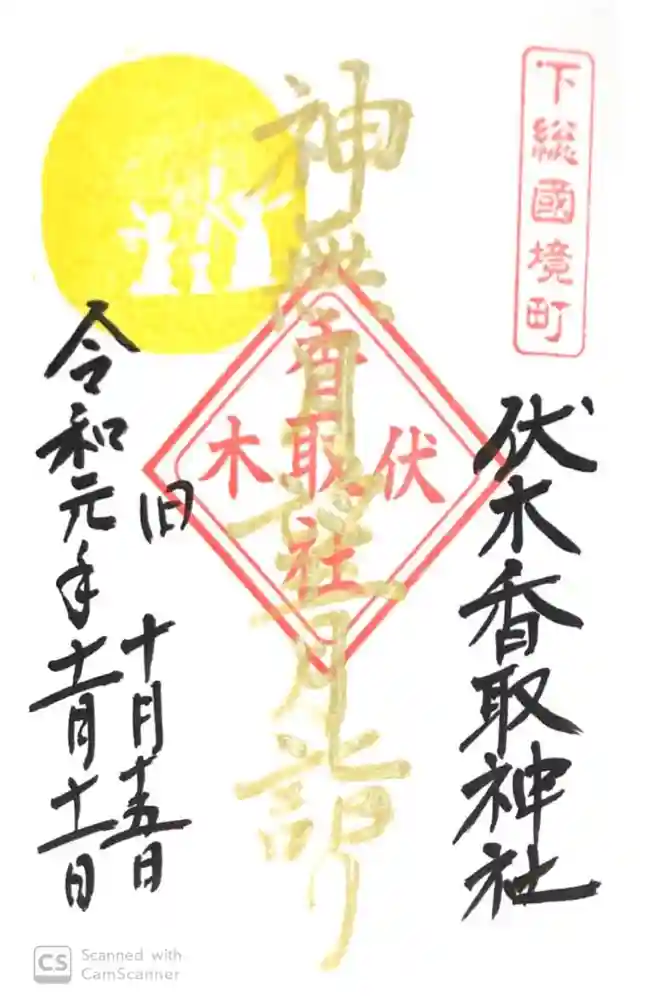 下総國境町
伏木香取神社
神無月望月詣り
伏木
香取社
旧十月十五日
令和元年十一月十一日
CS Scanned with
CamScanner